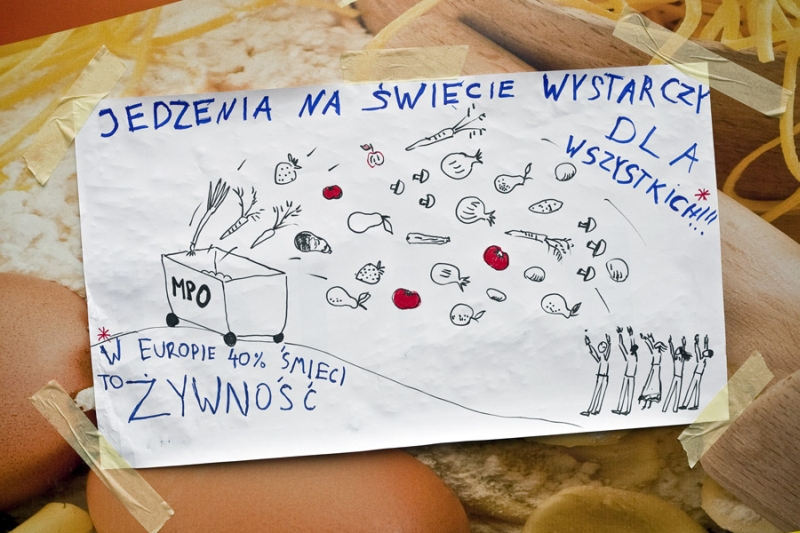 JEDZENIA NA ŚWIECIE WYSTARCZY
DLA
WSZYSTKICH!!! *
MPO
* W EUROPIE 40% ŚMIECI
TO ŻYWNOŚĆ